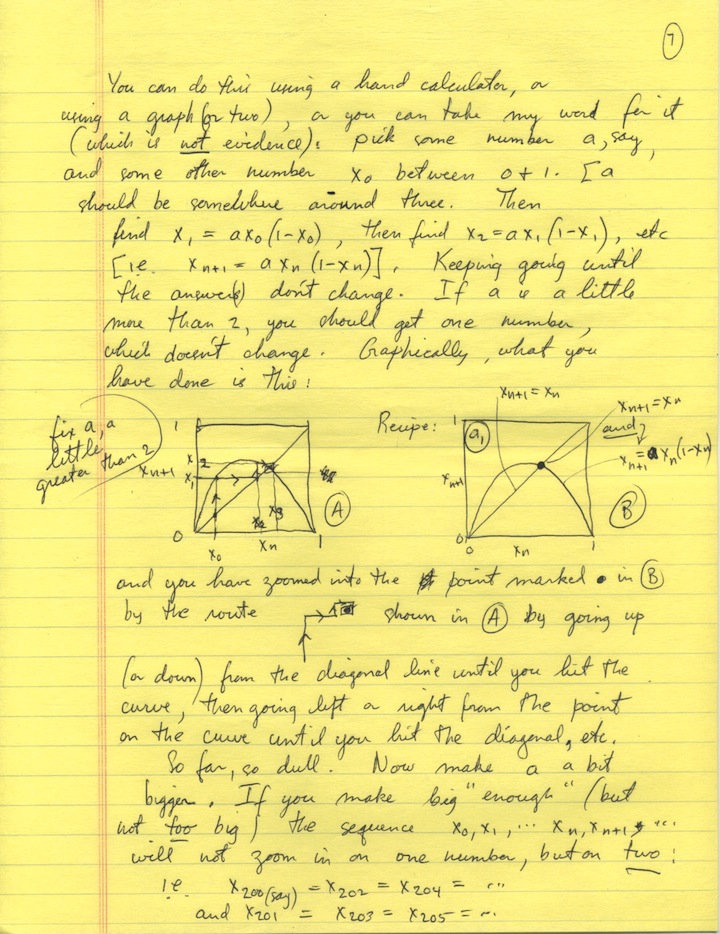 7
You can do this using a hand calculator, or
using a graph (or two), or you can take my word for it
(which is not evidence): pick some number a, say,
and some other number x₀ between 0 + 1. [a
should be somewhere around three. Then
find x₁ = ax₀(1-x₀), then find x₂=ax₁(1-x₁), etc
[i.e. xₙ₊₁ = axₙ(1-xₙ)]. Keeping going until
the answer(s) don't change. If a is a little
more than 2, you should get one number,
which doesn't change. Graphically, what you
have done is this:
fix a, a
little
greater than 2
1
x₂
x₁
xₙ₊₁
0
x₀
x₂
x₃
xₙ
1
A
Recipe:
1
a,
xₙ₊₁
0
0
xₙ
1
B
xₙ₊₁ = xₙ
xₙ₊₁ = xₙ
and
xₙ₊₁ = axₙ(1-xₙ)
and you have zoomed into the point marked • in B
by the route shown in A by going up
(or down) from the diagonal line until you hit the
curve, then going left or right from the point
on the curve until you hit the diagonal, etc.
So far, so dull. Now make a a bit
bigger. If you make big "enough" (but
not too big) the sequence x₀, x₁, ... xₙ, xₙ₊₁, ...
will not zoom in on one number, but on two:
i.e. x₂₀₀(say) = x₂₀₂ = x₂₀₄ = ...
and x₂₀₁ = x₂₀₃ = x₂₀₅ = ...